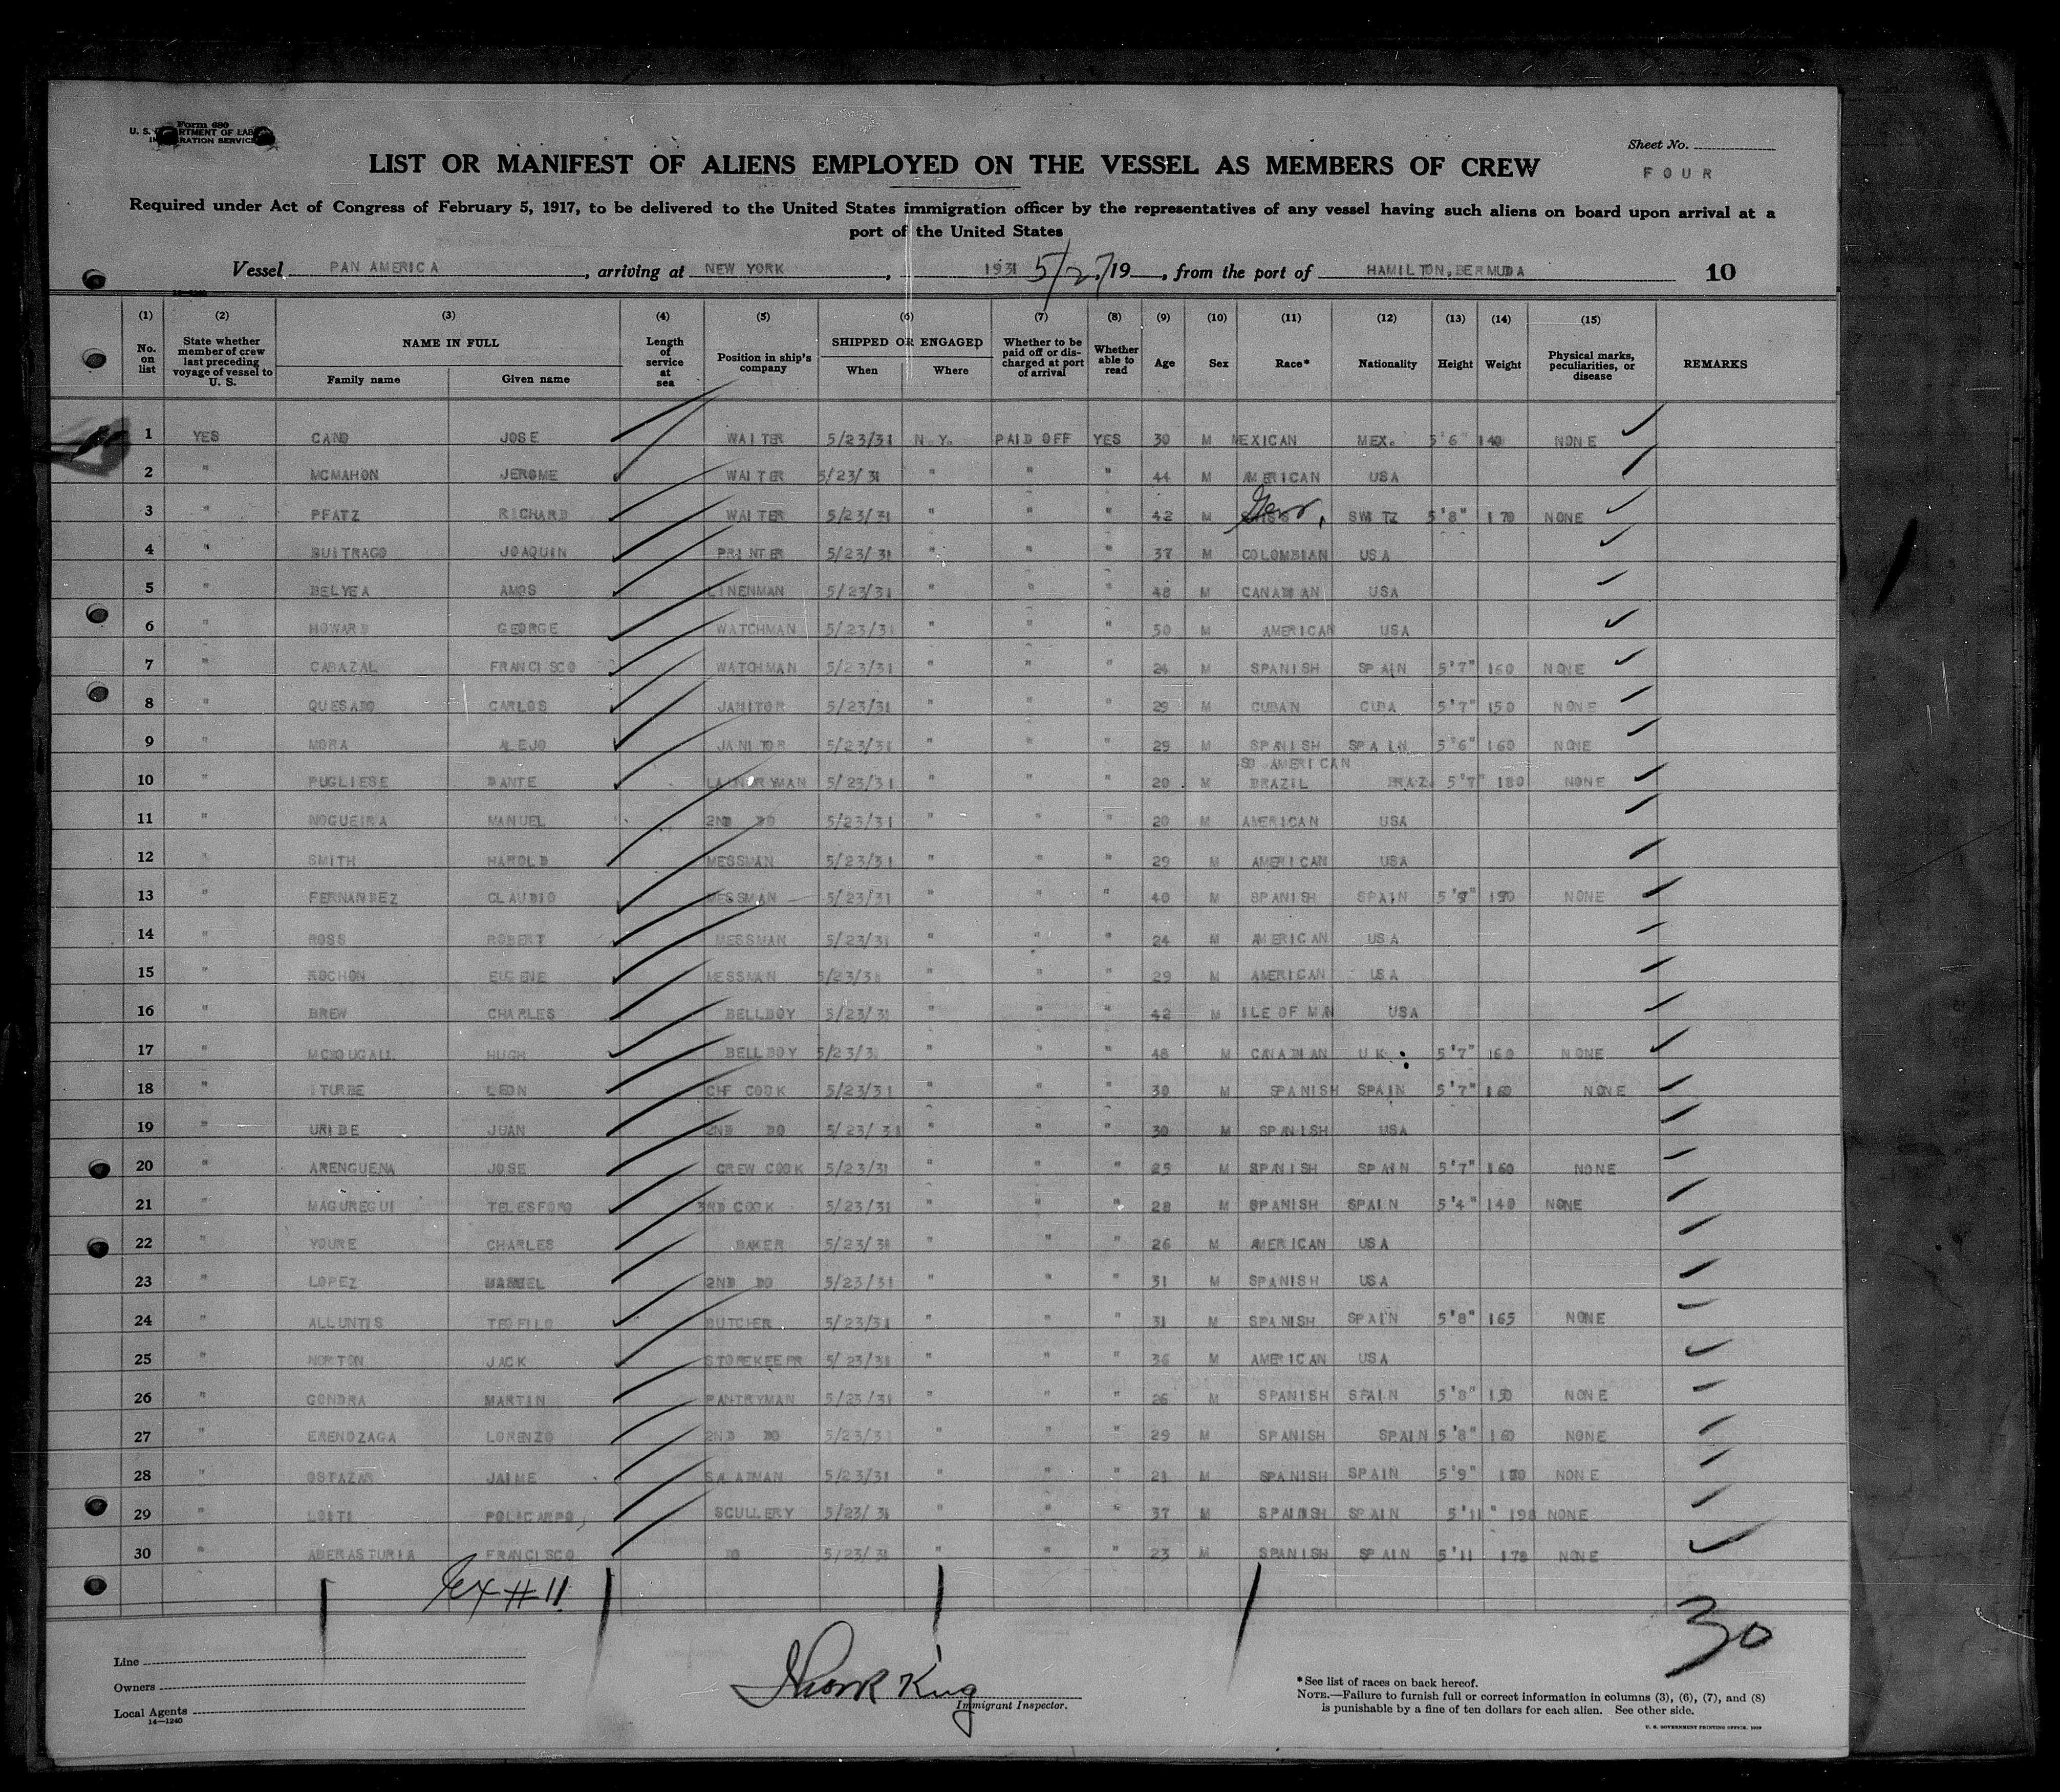 Form 680
U. S. DEPARTMENT OF LABOR
IMMIGRATION SERVICE
Sheet No.
FOUR
LIST OR MANIFEST OF ALIENS EMPLOYED ON THE VESSEL AS MEMBERS OF CREW
Required under Act of Congress of February 5, 1917, to be delivered to the United States immigration officer by the representatives of any vessel having such aliens on board upon arrival at a
port of the United States
Vessel PAN AMERICA, arriving at NEW YORK, 1931 5/27/19, from the port of HAMILTON, BERMUDA 10
(1) (2) (3) (4) (5) (6) (7) (8) (9) (10) (11) (12) (13) (14) (15)
No. on list State whether member of crew last preceding voyage of vessel to U. S. NAME IN FULL Family name Given name Length of service at sea Position in ship's company SHIPPED OR ENGAGED When Where Whether to be paid off or discharged at port of arrival Whether able to read Age Sex Race* Nationality Height Weight Physical marks, peculiarities, or disease REMARKS
1 YES CANO JOSE WAITER 5/23/31 N.Y. PAID OFF YES 30 M MEXICAN MEX. 5'6" 140 NONE
2 " MCMAHON JEROME WAITER 5/23/31 " " " 44 M AMERICAN USA
3 " PFATZ RICHARD WAITER 5/23/31 " " " 42 M SWISS Ger. SWITZ 5'8" 170 NONE
4 " BUITRAGO JOAQUIN PRINTER 5/23/31 " " " 37 M COLOMBIAN USA
5 " BELYEA AMOS LINENMAN 5/23/31 " " " 48 M CANADIAN USA
6 " HOWARD GEORGE WATCHMAN 5/23/31 " " " 50 M AMERICAN USA
7 " CABAZAL FRANCISCO WATCHMAN 5/23/31 " " " 24 M SPANISH SPAIN 5'7" 160 NONE
8 " QUESADO CARLOS JANITOR 5/23/31 " " " 29 M CUBAN CUBA 5'7" 150 NONE
9 " MORA ALEJO JANITOR 5/23/31 " " " 29 M SPANISH SPAIN 5'6" 160 NONE
SO AMERICAN
10 " PUGLIESE DANTE LAUNDRYMAN 5/23/31 " " " 20 M BRAZIL BRAZ. 5'7" 180 NONE
11 " NOGUEIRA MANUEL 2ND DO 5/23/31 " " " 20 M AMERICAN USA
12 " SMITH HAROLD MESSMAN 5/23/31 " " " 29 M AMERICAN USA
13 " FERNANDEZ CLAUDIO MESSMAN 5/23/31 " " " 40 M SPANISH SPAIN NONE
14 " ROSS ROBERT MESSMAN 5/23/31 " " " 24 M AMERICAN USA
15 " ROCHON EUGENE MESSMAN 5/23/31 " " " 29 M AMERICAN USA
16 " BREW CHARLES BELLBOY 5/23/31 " " " 42 M ILE OF MAN USA
17 " MCDOUGALL HUGH BELLBOY 5/23/31 " " " 48 M CANADIAN U K. 5'7" 160 NONE
18 " ITURBE LEON CHF COOK 5/23/31 " " " 30 M SPANISH SPAIN 5'7" 160 NONE
19 " URIBE JUAN 2ND DO 5/23/31 " " " 30 M SPANISH USA
20 " ARENGUENA JOSE CREW COOK 5/23/31 " " " 25 M SPANISH SPAIN 5'7" 160 NONE
21 " MAGUREGUI TELESFORO 3RD COOK 5/23/31 " " " 28 M SPANISH SPAIN 5'4" 140 NONE
22 " YOURE CHARLES BAKER 5/23/31 " " " 26 M AMERICAN USA
23 " LOPEZ MANUEL 2ND DO 5/23/31 " " " 31 M SPANISH USA
24 " ALLUNTIS TEOFILO BUTCHER 5/23/31 " " " 31 M SPANISH SPAIN 5'8" 165 NONE
25 " NORTON JACK STOREKEEPR 5/23/31 " " " 36 M AMERICAN USA
26 " GONDRA MARTIN PANTRYMAN 5/23/31 " " " 26 M SPANISH SPAIN 5'8" 150 NONE
27 " ERENOZAGA LORENZO 2ND DO 5/23/31 " " " 29 M SPANISH SPAIN 5'8" 160 NONE
28 " OSTAZAR JAIME SALADMAN 5/23/31 " " " 21 M SPANISH SPAIN 5'9" NONE
29 " LOITI POLICARPO SCULLERY 5/23/31 " " " 37 M SPANISH SPAIN 5'11" 198 NONE
30 " ABERASTURIA FRANCISCO DO 5/23/31 " " " 23 M SPANISH SPAIN 5'11 178 NONE
#11
30
Line
Owners
Local Agents
14—1240
King
Immigrant Inspector.
*See list of races on back hereof.
NOTE.—Failure to furnish full or correct information in columns (3), (6), (7), and (8)
is punishable by a fine of ten dollars for each alien. See other side.
U. S. GOVERNMENT PRINTING OFFICE, 1929